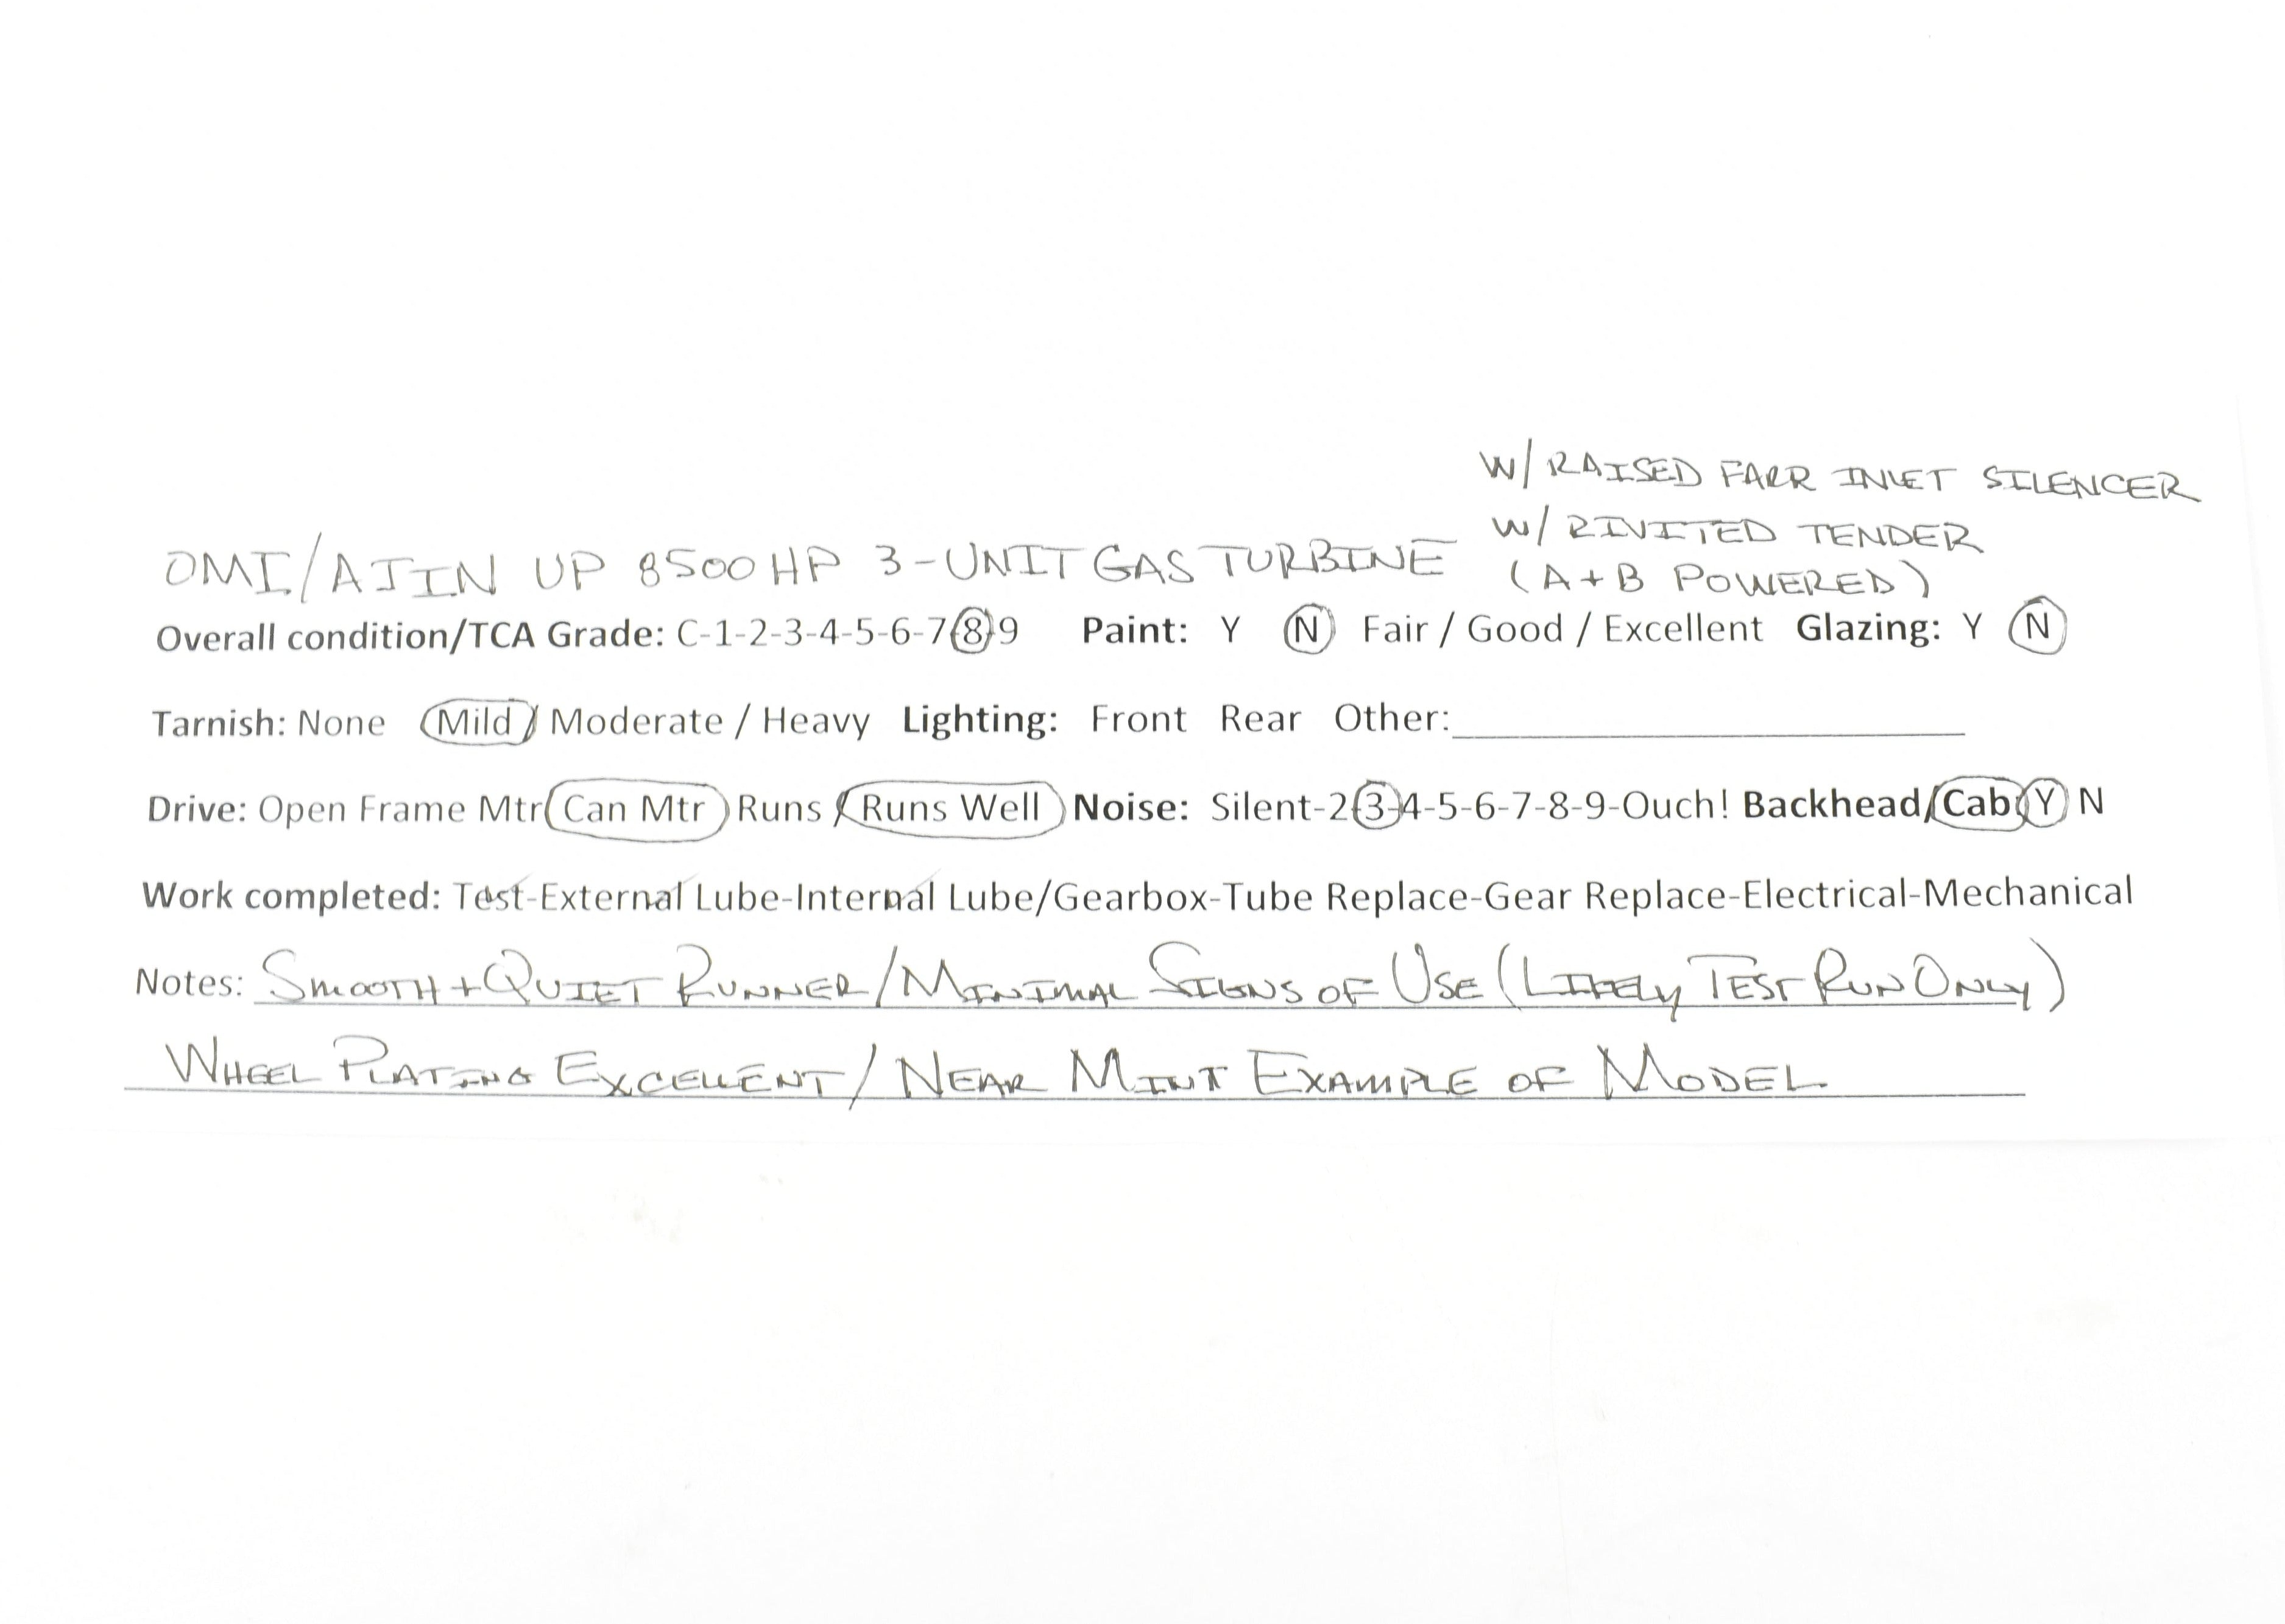 W/ RAISED FARR INLET SILENCER
W/ RIVITED TENDER
OMI/AJIN UP 8500HP 3-UNIT GAS TURBINE
(A+B POWERED)
Overall condition/TCA Grade: C-1-2-3-4-5-6-7-8-9 Paint: Y N Fair / Good / Excellent Glazing: Y N
Tarnish: None Mild / Moderate / Heavy Lighting: Front Rear Other:
Drive: Open Frame Mtr/Can Mtr Runs / Runs Well Noise: Silent-2-3-4-5-6-7-8-9-Ouch! Backhead/Cab: Y N
Work completed: Test-External Lube-Internal Lube/Gearbox-Tube Replace-Gear Replace-Electrical-Mechanical
Notes: SMOOTH + QUIET RUNNER/MINIMAL SIGNS OF USE (LIKELY TEST RUN ONLY)
WHEEL PLATING EXCELLENT/NEAR MINT EXAMPLE OF MODEL